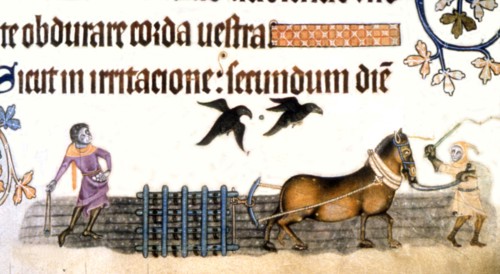 te obdurare corda uestra.
Sicut in irritacione: secundum diē